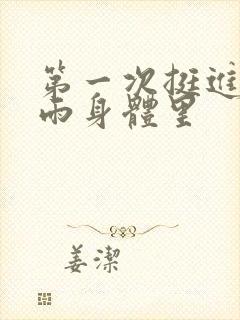 第一次挺進
雨身體里
姜潔